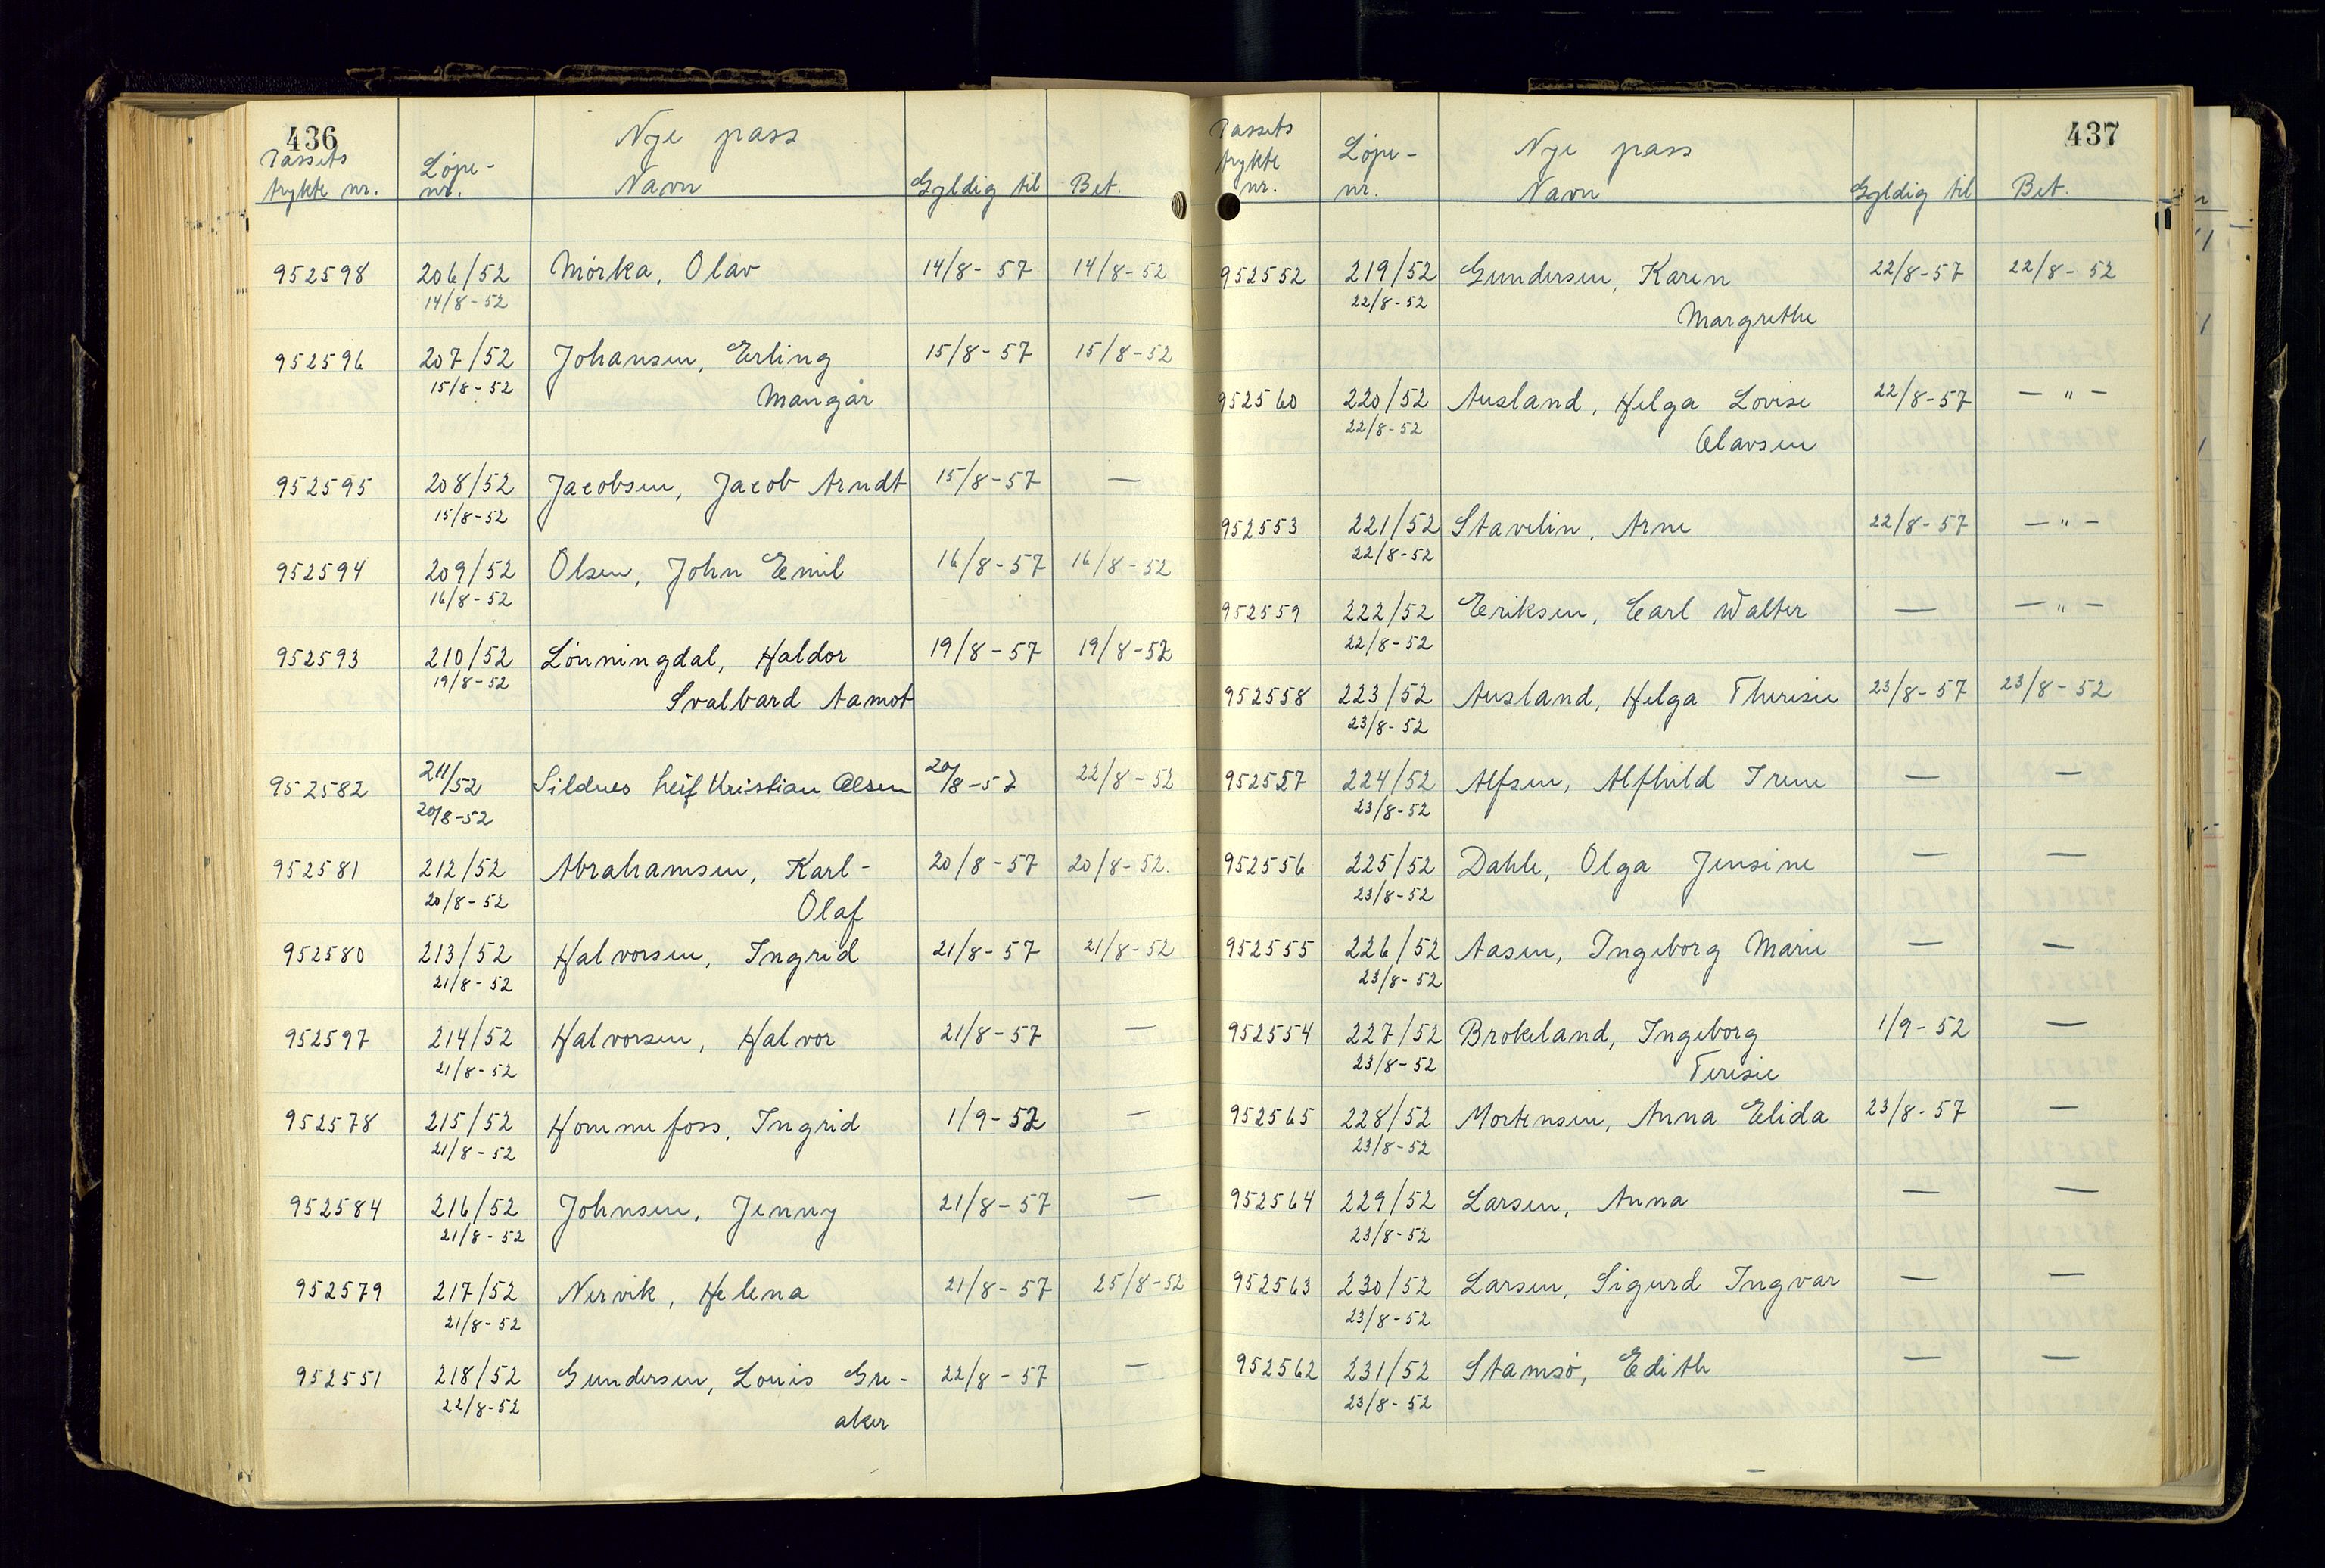 436
Nye pass
Passets
trykte nr.
Løpe-
nr.
Navn
Gyldig til
Bet.
952598 206/52 Mørka, Olav 14/8-57 14/8-52
14/8-52
952596 207/52 Johansen, Erling 15/8-57 15/8-52
15/8-52 Mangår
952595 208/52 Jacobsen, Jacob Arndt 15/8-57 —
15/8-52
952594 209/52 Olsen, John Emil 16/8-57 16/8-52
16/8-52
952593 210/52 Lønningdal, Haldor 19/8-57 19/8-52
19/8-52 Svalbard Aamot
952582 211/52 Sildnes Leif Kristian Olsen 20/8-57 22/8-52
20/8-52
952581 212/52 Abrahamsen, Karl- 20/8-57 20/8-52.
20/8-52 Olaf
952580 213/52 Halvorsen, Ingrid 21/8-57 21/8-52
21/8-52
952597 214/52 Halvorsen, Halvor 21/8-57 —
21/8-52
952578 215/52 Hommefoss, Ingrid 1/9-52 —
21/8-52
952584 216/52 Johnsen, Jenny 21/8-57 —
21/8-52
952579 217/52 Nervik, Helena 21/8-57 25/8-52
21/8-52
952551 218/52 Gundersen, Louis Gre- 22/8-57 —
22/8-52 aker
437
Nye pass
Passets
trykte
nr.
Løpe-
nr.
Navn
Gyldig til
Bet.
952552 219/52 Gundersen, Karen 22/8-57 22/8-52
22/8-52 Margrethe
952560 220/52 Ausland, Helga Lovise 22/8-57 — " —
22/8-52 Olavsen
952553 221/52 Stavelin, Arne 22/8-57 — " —
22/8-52
952559 222/52 Eriksen, Carl Walter — — " —
22/8-52
952558 223/52 Ausland, Helga Theresie 23/8-57 23/8-52
23/8-52
952557 224/52 Alfsen, Alfhild Irene — —
23/8-52
952556 225/52 Dahle, Olga Jensine — —
23/8-52
952555 226/52 Aasen, Ingeborg Marie — —
23/8-52
952554 227/52 Brokeland, Ingeborg 1/9-52 —
23/8-52 Teresie
952565 228/52 Mortensen, Anna Elida 23/8-57 —
23/8-52
952564 229/52 Larsen, Anna — —
23/8-52
952563 230/52 Larsen, Sigurd Ingvar — —
23/8-52
952562 231/52 Stamsø, Edith — —
23/8-52